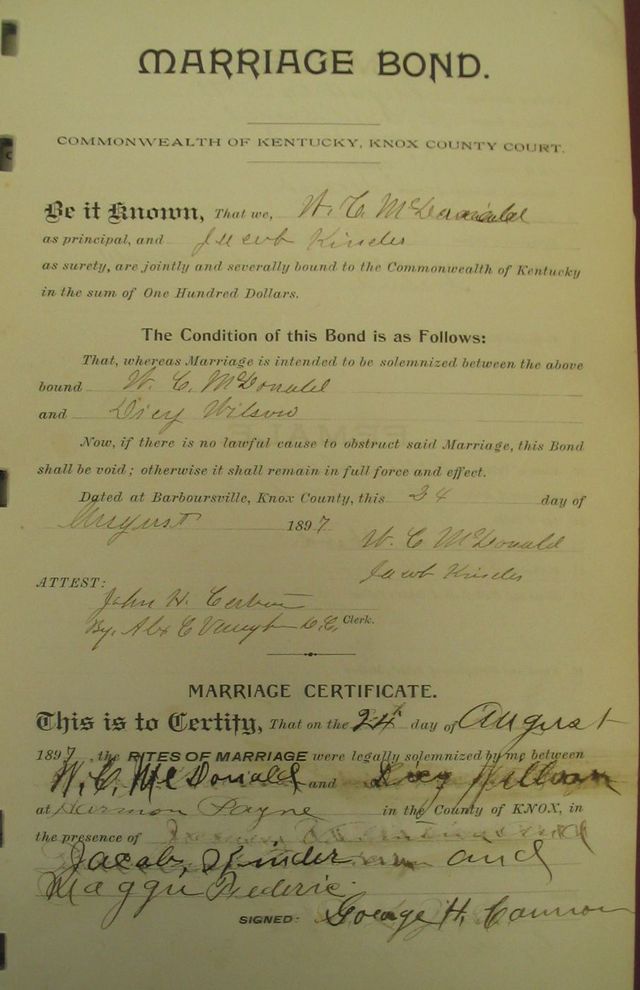 MARRIAGE BOND.
COMMONWEALTH OF KENTUCKY, KNOX COUNTY COURT.
Be it Known, That we, W. C. McDonald
as principal, and Jacob Kinder
as surety, are jointly and severally bound to the Commonwealth of Kentucky
in the sum of One Hundred Dollars.
The Condition of this Bond is as Follows:
That, whereas Marriage is intended to be solemnized between the above
bound W. C. McDonald
and Dicy Wilson
Now, if there is no lawful cause to obstruct said Marriage, this Bond
shall be void; otherwise it shall remain in full force and effect.
Dated at Barboursville, Knox County, this 24 day of
August 1897
W. C. McDonald
Jacob Kinder
ATTEST:
John H.
By, Alex C D.C. Clerk.
MARRIAGE CERTIFICATE.
This is to Certify, That on the 24th day of August
1897, the RITES OF MARRIAGE were legally solemnized by me between
W. C. McDonald and
at Payne in the County of KNOX, in
the presence of
Jacob, and
Maggie Frederic
SIGNED: George H. Cannon